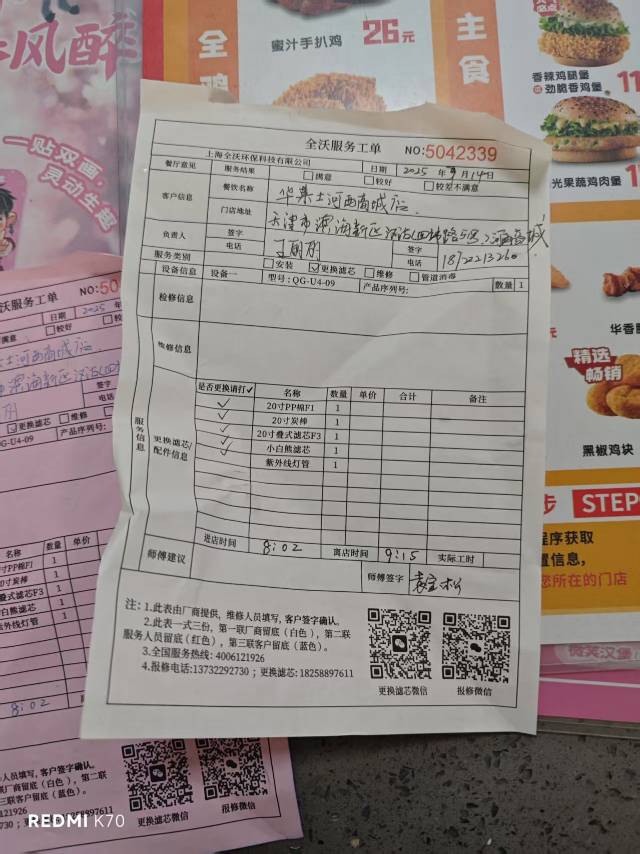 全
鸡
蜜汁手扒鸡 26元
主
食
香辣鸡腿堡
或 劲脆香鸡堡
光果蔬鸡肉堡
华香
精选
畅销
黑椒鸡块
步 STEP
程序获取
置信息,
您所在的门店
微笑汉堡
风醉
一贴双画,
灵动生趣
全沃服务工单 NO:5042339
上海全沃环保科技有限公司 日期 2025 年 9 月 14 日
餐厅意见 服务结果 满意 较好 较差不满意
客户信息 餐饮名称 华莱士河西商城店
门店地址 天津市滨海新区汉沽
负责人 签字 签字
电话 电话 18722213260
服务类别 安装 更换滤芯 维修 管道消毒
设备信息 设备一 型号: QG-U4-09 产品序列号: 数量 1
检修信息
维修信息
服务信息
更换滤芯/
配件信息
是否更换请打✓ 名称 数量 单价 合计 备注
✓ 20寸PP棉F1 1
✓ 20寸炭棒 1
✓ 20寸叠式滤芯F3 1
✓ 小白熊滤芯 1
紫外线灯管 1
进店时间 8:02 离店时间 9:15 实际工时
师傅建议 师傅签字
注: 1.此表由厂商提供, 维修人员填写, 客户签字确认。
2.此表一式三份, 第一联厂商留底(白色), 第二联
服务人员留底(红色), 第三联客户留底(蓝色)。
3.全国服务热线: 4006121926
4.报修电话:13732292730 ; 更换滤芯: 18258897611
更换滤芯微信 报修微信
沃服务工单 NO:50
日期 2025 年
满意 较好
士河西商城店
更换滤芯 维修
G-U4-09 产品序列号:
名称 数量 单价
0寸PP棉F1 1
寸炭棒 1
寸叠式滤芯F3 1
小白熊滤芯 1
紫外线灯管 1
8:02
人员填写, 客户签字确认。
联厂商留底(白色), 第二联
三联客户留底(蓝色)。
121926
2730 ; 更换滤芯: 18258897611
更换滤芯微信 报修微信
REDMI K70